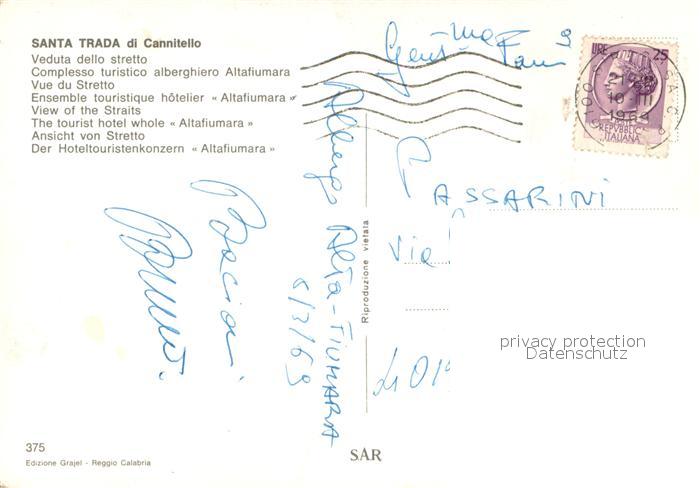 SANTA TRADA di Cannitello
Veduta dello stretto
Complesso turistico alberghiero Altafiumara
Vue du Stretto
Ensemble touristique hôtelier « Altafiumara »
View of the Straits
The tourist hotel whole « Altafiumara »
Ansicht von Stretto
Der Hoteltouristenkonzern « Altafiumara »
Gent.ma Fam
PASSARINI
Via
Albergo ALTA-FIUMARA
6/3/69
Bacioni
Riproduzione vietata
LIRE 25
REPVBBLICA
ITALIANA
privacy protection
Datenschutz
375
Edizione Grajel - Reggio Calabria
SAR